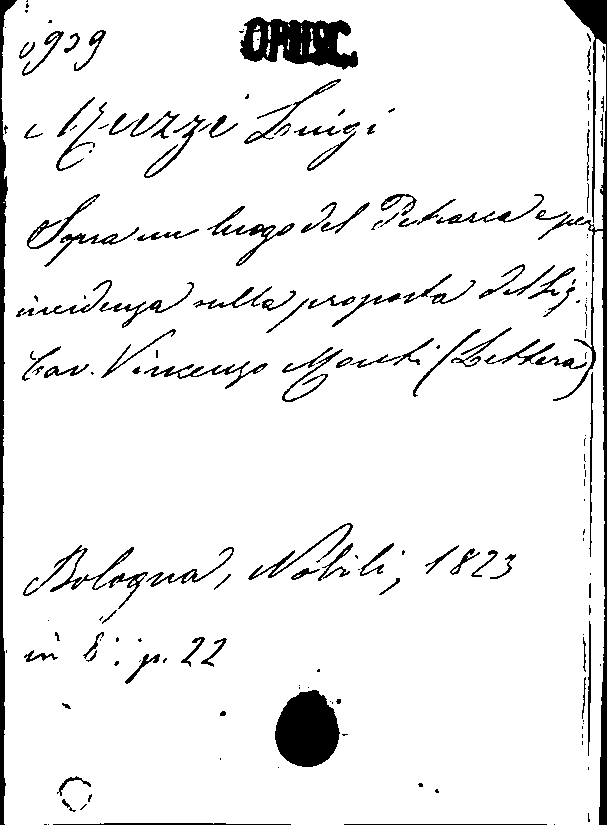 OPUSC.
Muzzi Luigi
Sopra un luogo del Petrarca e per
incidenza sulla proposta del Sig.
Cav. Vincenzo Monti (Lettera)
Bologna, Nobili, 1823
in 8°: p. 22